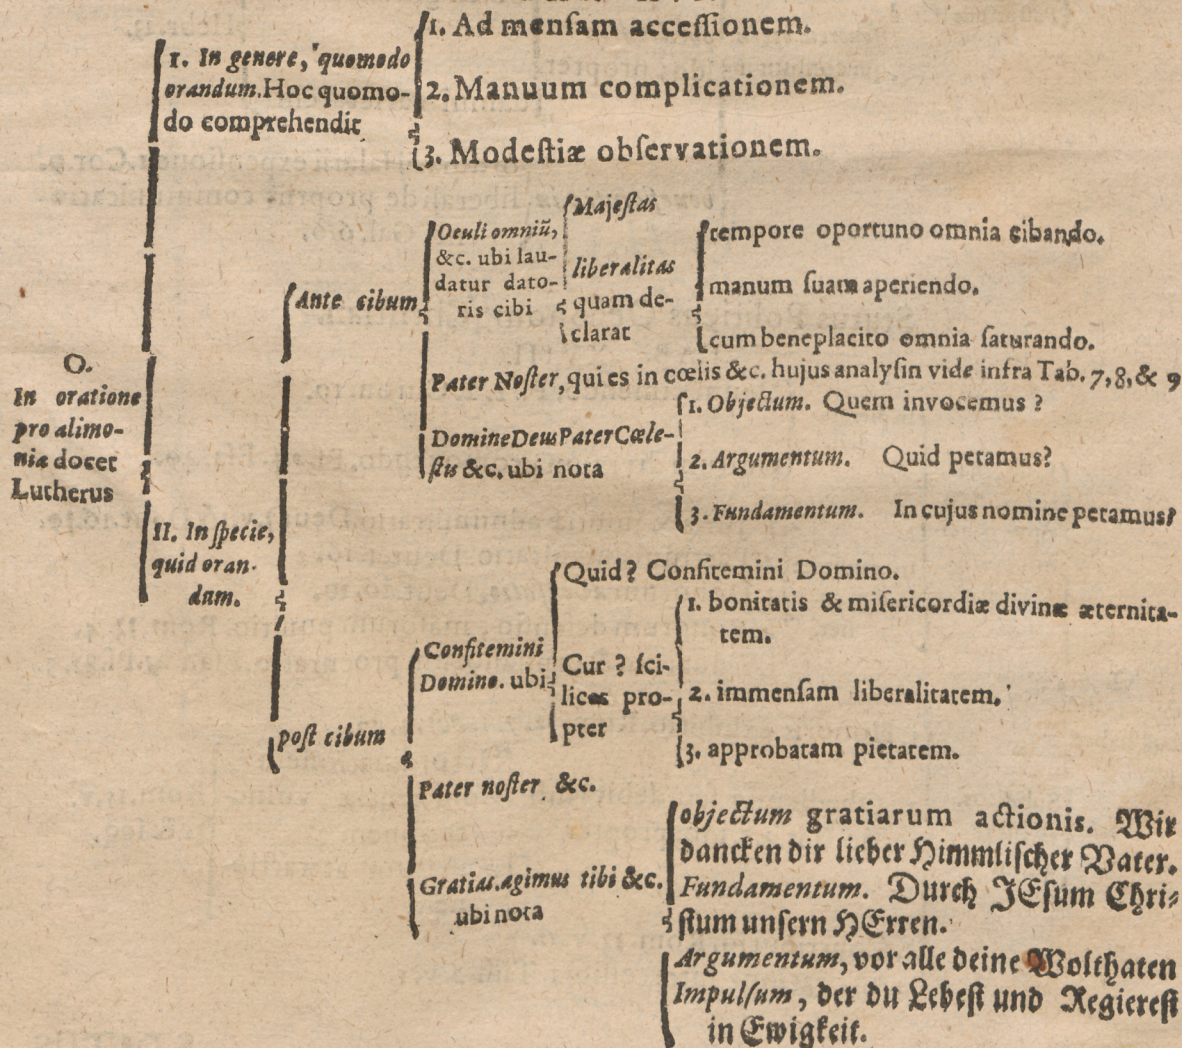 O.
In oratione
pro alimo-
niæ docet
Lutherus
I. In genere, quomodo
orandum. Hoc quomo-
do comprehendit
1. Ad mensam accessionem.
2. Manuum complicationem.
3. Modestiæ observationem.
II. In specie,
quid oran-
dum.
Ante cibum
Oculi omniū,
&c. ubi lau-
datur dato-
ris cibi
Majestas
liberalitas
quam de-
clarat
tempore oportuno omnia cibando.
manum suam aperiendo.
cum beneplacito omnia saturando.
Pater Noster, qui es in cœlis &c. hujus analysin vide infra Tab. 7, 8, & 9
Domine Deus Pater Cœle-
stis &c. ubi nota
1. Objectum. Quem invocemus ?
2. Argumentum. Quid petamus?
3. Fundamentum. In cujus nomine petamus?
post cibum
Confitemini
Domino. ubi
Quid ? Confitemini Domino.
Cur ? sci-
licet pro-
pter
1. bonitatis & misericordiæ divinæ æternita-
tem.
2. immensam liberalitatem.
3. approbatam pietatem.
Pater noster &c.
Gratias agimus tibi &c.
ubi nota
objectum gratiarum actionis. Wir
dancken dir lieber Himmlischer Vater.
Fundamentum. Durch JEsum Chri-
stum unsern HErren.
Argumentum, vor alle deine Wolthaten
Impulsum, der du Lebest und Regierest
in Ewigkeit.